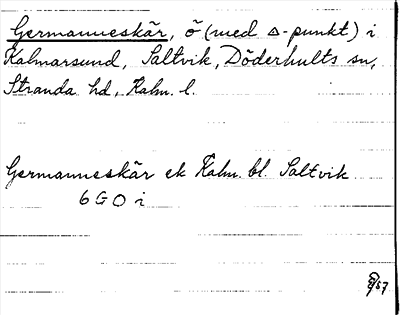 Germanneskär, ö (med Δ-punkt) i
Kalmarsund, Saltvik, Döderhults sn,
Stranda hd, Kalm. l.
Germanneskär ek Kalm. bl. Saltvik
6 G O i